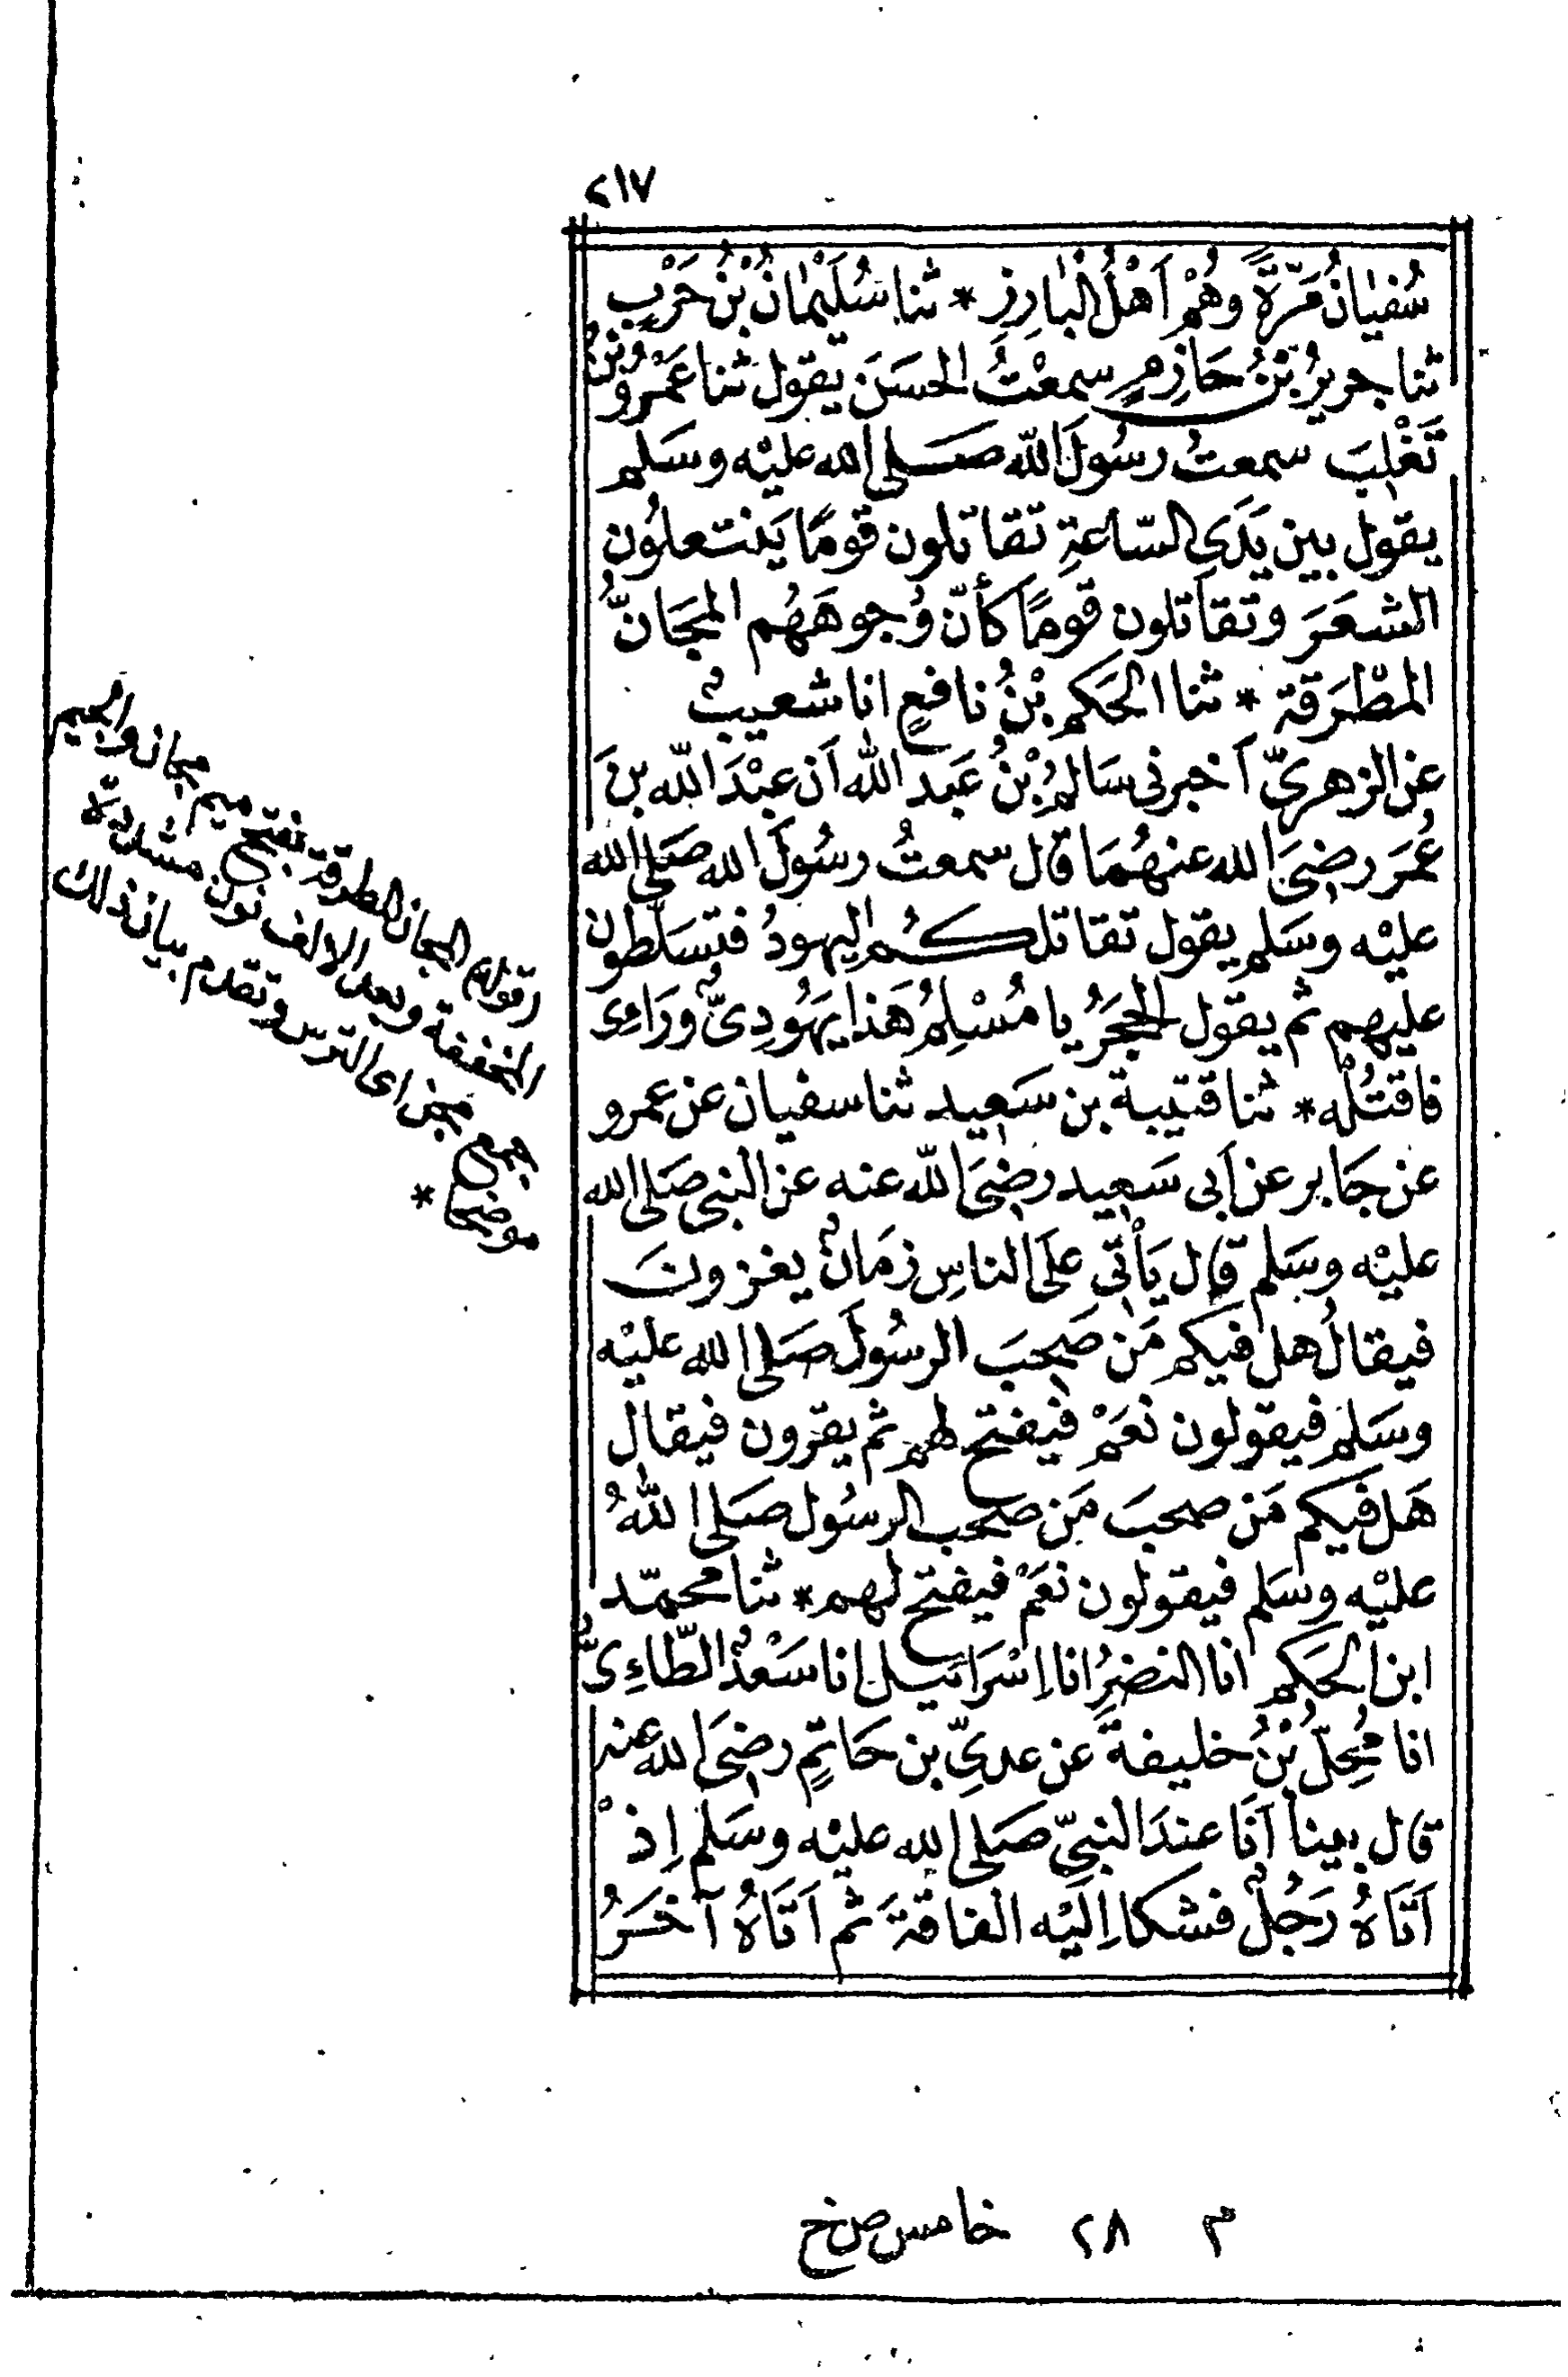 ٢١٧
سُفيَانُ مَرَّةً وَهُمْ اَهْلُ الْبَارِزِ * ثنا سُلَيْمَانُ بْنُ حَرْبٍ
ثنا جريرُ بْنُ حَازِمٍ سمعْتُ الحسَنَ يقول ثنا عَمْرُو بْنُ
تَغْلِبَ سمعتُ رسُولَ اللّه صَلى الله عليْه وسَلم
يقول بين يَدَيِ السّاعةِ تقاتلون قومًا يَنتعلُون
الشعَرَ وتقاتلون قومًا كأنّ وُجوهَهُم المجَانُّ
المطْرَقة * ثنا الحَكم بْنُ نافعٍ انا شعيبٌ
عن الزهريّ اَخبرنى سَالمُ بْنُ عَبد الله اَن عبْدَ اللّه بنَ
عُمَر رضِىَ الله عنهُمَا قال سمعتُ رسُولَ الله صَلى الله
عليْه وسَلم يقول تقاتلكُم اليهودُ فتسَلّطون
عليهم ثم يقول الحجَرُ يا مُسْلِمُ هَذا يَهُودِىٌّ وَرَاءِى
فاقتُلْه * ثنا قتيبة بن سَعِيد ثنا سفيان عن عمرو
عن جَابر عن اَبى سَعِيد رضِىَ اللّه عنه عن النبى صَلى الله
عليْه وسَلم قال يَأْتِى علَى الناسِ زمَانٌ يغزونَ
فيقالُ هل فيكم مَن صَحِبَ الرسُولَ صَلى الله عليْه
وسَلم فيقولون نعَمْ فيفتح لهم ثم يغزون فيقال
هَل فيكم مَن صحبَ مَن صحب الرسُول صَلى اللّٰهُ
عليْه وسَلم فيقولون نعَمْ فيفتح لهم * ثنا محمّد
ابن الحَكم انا النضرُ انا اِسْرَائيل انا سَعْدٌ الطّاءِىُّ
انا مُحِلُّ بْنُ خليفةَ عن عدىِّ بن حَاتمٍ رضِىَ الله عنه
قال بينا اَنَا عندَ النبىِّ صَلى الله عليْه وسَلم اِذْ
اَتَاهُ رَجُلٌ فشكا اِليْه الفاقةَ ثم اَتَاهُ آخَرُ
(قوله) المجان المطرقة بفتح ميم مجان والجيم
المخففة وبعد الالف نون مشددة
جمع مجن اى الترس وتقدم بيان ذلك
موضحا *
م ٢٨ خامس ص خ